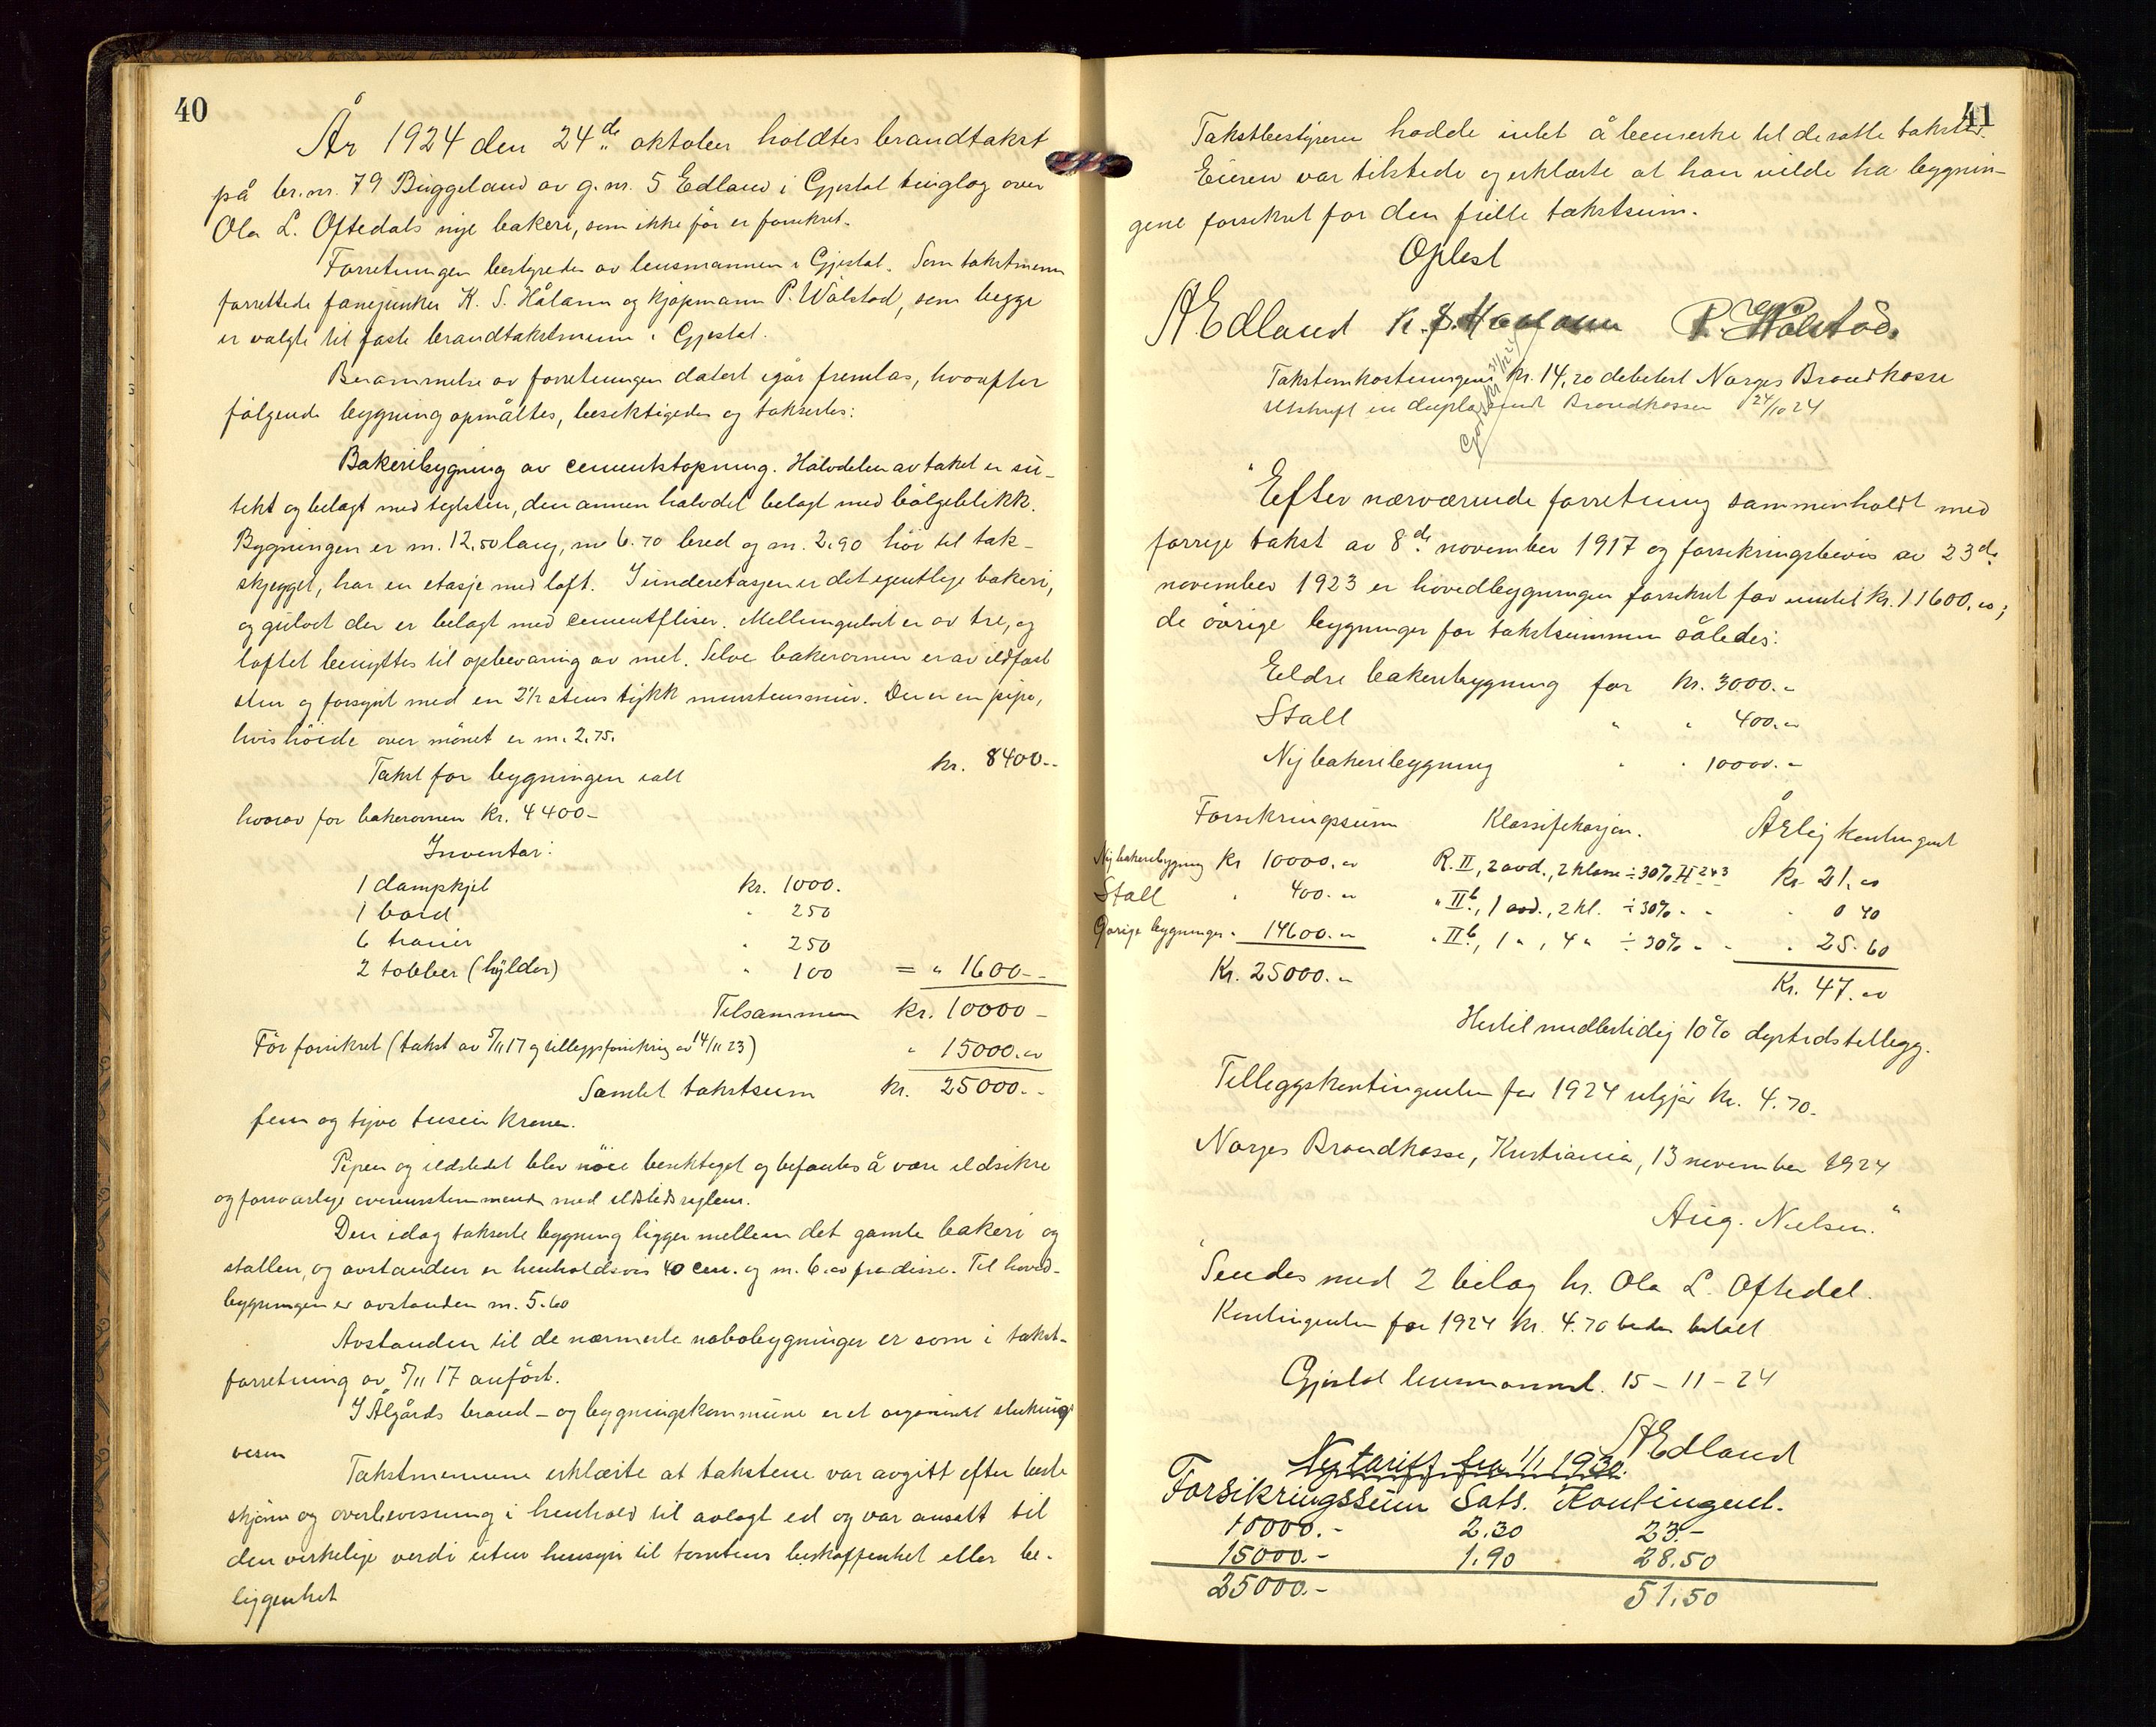 40
År 1924 den 24de oktober holdtes brandtakst
på br.nr. 79 Buggeland av g.nr. 5 Edland i Gjestal tinglag over
Ola L. Oftedals nye bakeri, som ikke før er forsikret.
Forretningen bestyredes av lensmannen i Gjestal. Som takstmenn
forrettede fanejunker K. S. Håland og kjøpmann P. Wålstad, som begge
er valgte til faste brandtakstmenn i Gjestal.
Berammelse av forretningen datert igår fremlas, hvorefter
følgende bygning opmåltes, besiktigedes og takserdes:
Bakeribygning av cementstøpning. Halvdelen av taket er su-
tekt og belagt med teglsten, den annen halvdel belagt med bølgeblikk.
Bygningen er m. 12,50 lang, m 6.70 bred og m. 2,90 høi til tak-
skjegget, har en etasje med loft. I underetasjen er det egentlige bakeri,
og gulvet der er belagt med cementfliser. Mellemgulvet er av tre, og
loftet benyttes til opbevaring av mel. Selve bakerovnen er av ildfast
sten og forsynt med en 2½ stens tykk murstensmur. Der er en pipe,
hvis høide over mønet er m. 2.75.
Takst for bygningen ialt kr. 8400.-
hvorav for bakerovnen kr. 4400-
Inventar:
1 dampkjel kr. 1000.
1 bord " 250
6 trauer " 250
2 tobber (hylder) " 100 = " 1600--
Tilsammen kr. 10000-
Før forsikret (takst av 5/11 17 og tilleggsforsikring av 14/11 23) " 15000.00
Samlet takstsum kr. 25000.-
fem og tyve tusen kroner.
Pipen og ildstedet blev nøie besiktiget og befantes å være ildsikre
og forsvarlige overensstemmende med ildstedsreglene.
Den idag takserte bygning ligger mellem det gamle bakeri og
stallen, og avstanden er henholdsvis 40 cm. og m. 6.00 fra disse. Til hoved-
bygningen er avstanden m. 5.60
Avstanden til de nærmeste nabobygninger er som i takst-
forretning av 5/11 17 anført.
I Ålgårds brand- og bygningskommune er et organisert slukings
vesen
Takstmennene erklærte at takstene var avgitt efter beste
skjønn og overbevisning i henhold til avlagt ed og var ansatt til
den virkelige verdi uten hensyn til tomtens beskaffenhet eller be-
liggenhet
41
Takstbestyreren hadde intet å bemerke til de satte takster.
Eieren var tilstede og erklærte at han vilde ha bygnin-
gene forsikret for den fulle takstsum.
Oplest
A Edland K. S. Haaland P. Wålstad.
Takstomkostningene kr. 14,20 debitert Norges Brandkasse
Utskrift in duplo sendt Brandkassen 24/10 24
"Efter nærværende forretning sammenholdt med
forrige takst av 8de november 1917 og forsikringsbevis av 23de
november 1923 er hovedbygningen forsikret for uendret kr. 11600,00;
de øvrige bygninger for takstsummen således:
Eldre bakeribygning for kr. 3000.-
Stall " " 400.00
Ny bakeribygning " " 10000.-
Forsikringssum Klassifikasjon. Årlig kontingent
Ny bakeribygning kr 10000.00 R. II, 2 avd., 2 klasse ÷ 30% H 2+3 kr. 21.00
Stall " 400.00 " IIb, 1 avd., 2 kl. ÷ 30% " " " 0 40
Øvrige bygninger " 14600.00 " IIb, 1 " , 4 " ÷ 30% " " " 25.60
Kr. 25000.00 Kr. 47.00
Hertil midlertidig 10% dyrtidstillegg.
Tilleggskontingenten for 1924 utgjør kr. 4.70.
Norges Brandkasse, Kristiania, 13 november 1924
Aug. Nielsen."
Sendes med 2 bilag hr. Ola L. Oftedal.
Kontingenten for 1924 kr. 4.70 bedes betalt
Gjestal lensmannsd. 15-11-24
A Edland
Ny tariff fra 1/1 1930.
Forsikringssum Sats. Kontingent.
10000.- 2.30 23.-
15000.- 1.90 28.50
25000.- 51.50